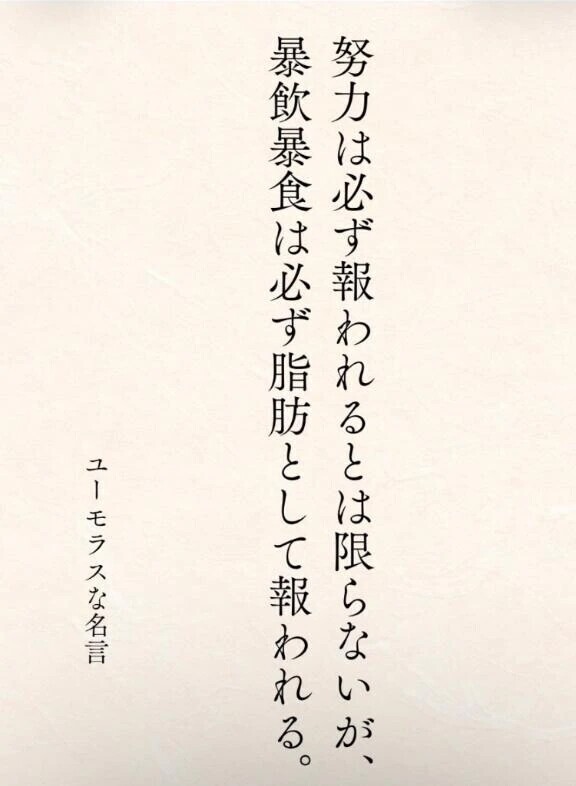 努力は必ず報われるとは限らないが、
暴飲暴食は必ず脂肪として報われる。
ユーモラスな名言